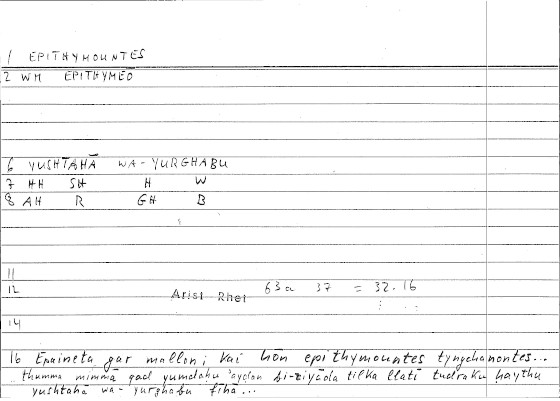 1 EPITHYMOUNTES
2 WM EPITHYMEO
6 YUSHTAHĀ WA-YURGHABU
7 HH SH H W
8 AH R GH B
11
12 Arist Rhet 63a 37 = 32.16
14
16 Epaineta gar mallon; kai hōn epithymountes tynchanontes...
thumma mimmā qad yumdahu bi-ziyāda tilka llatī tudraku haythu
yushtahā wa-yurghabu fīhā...